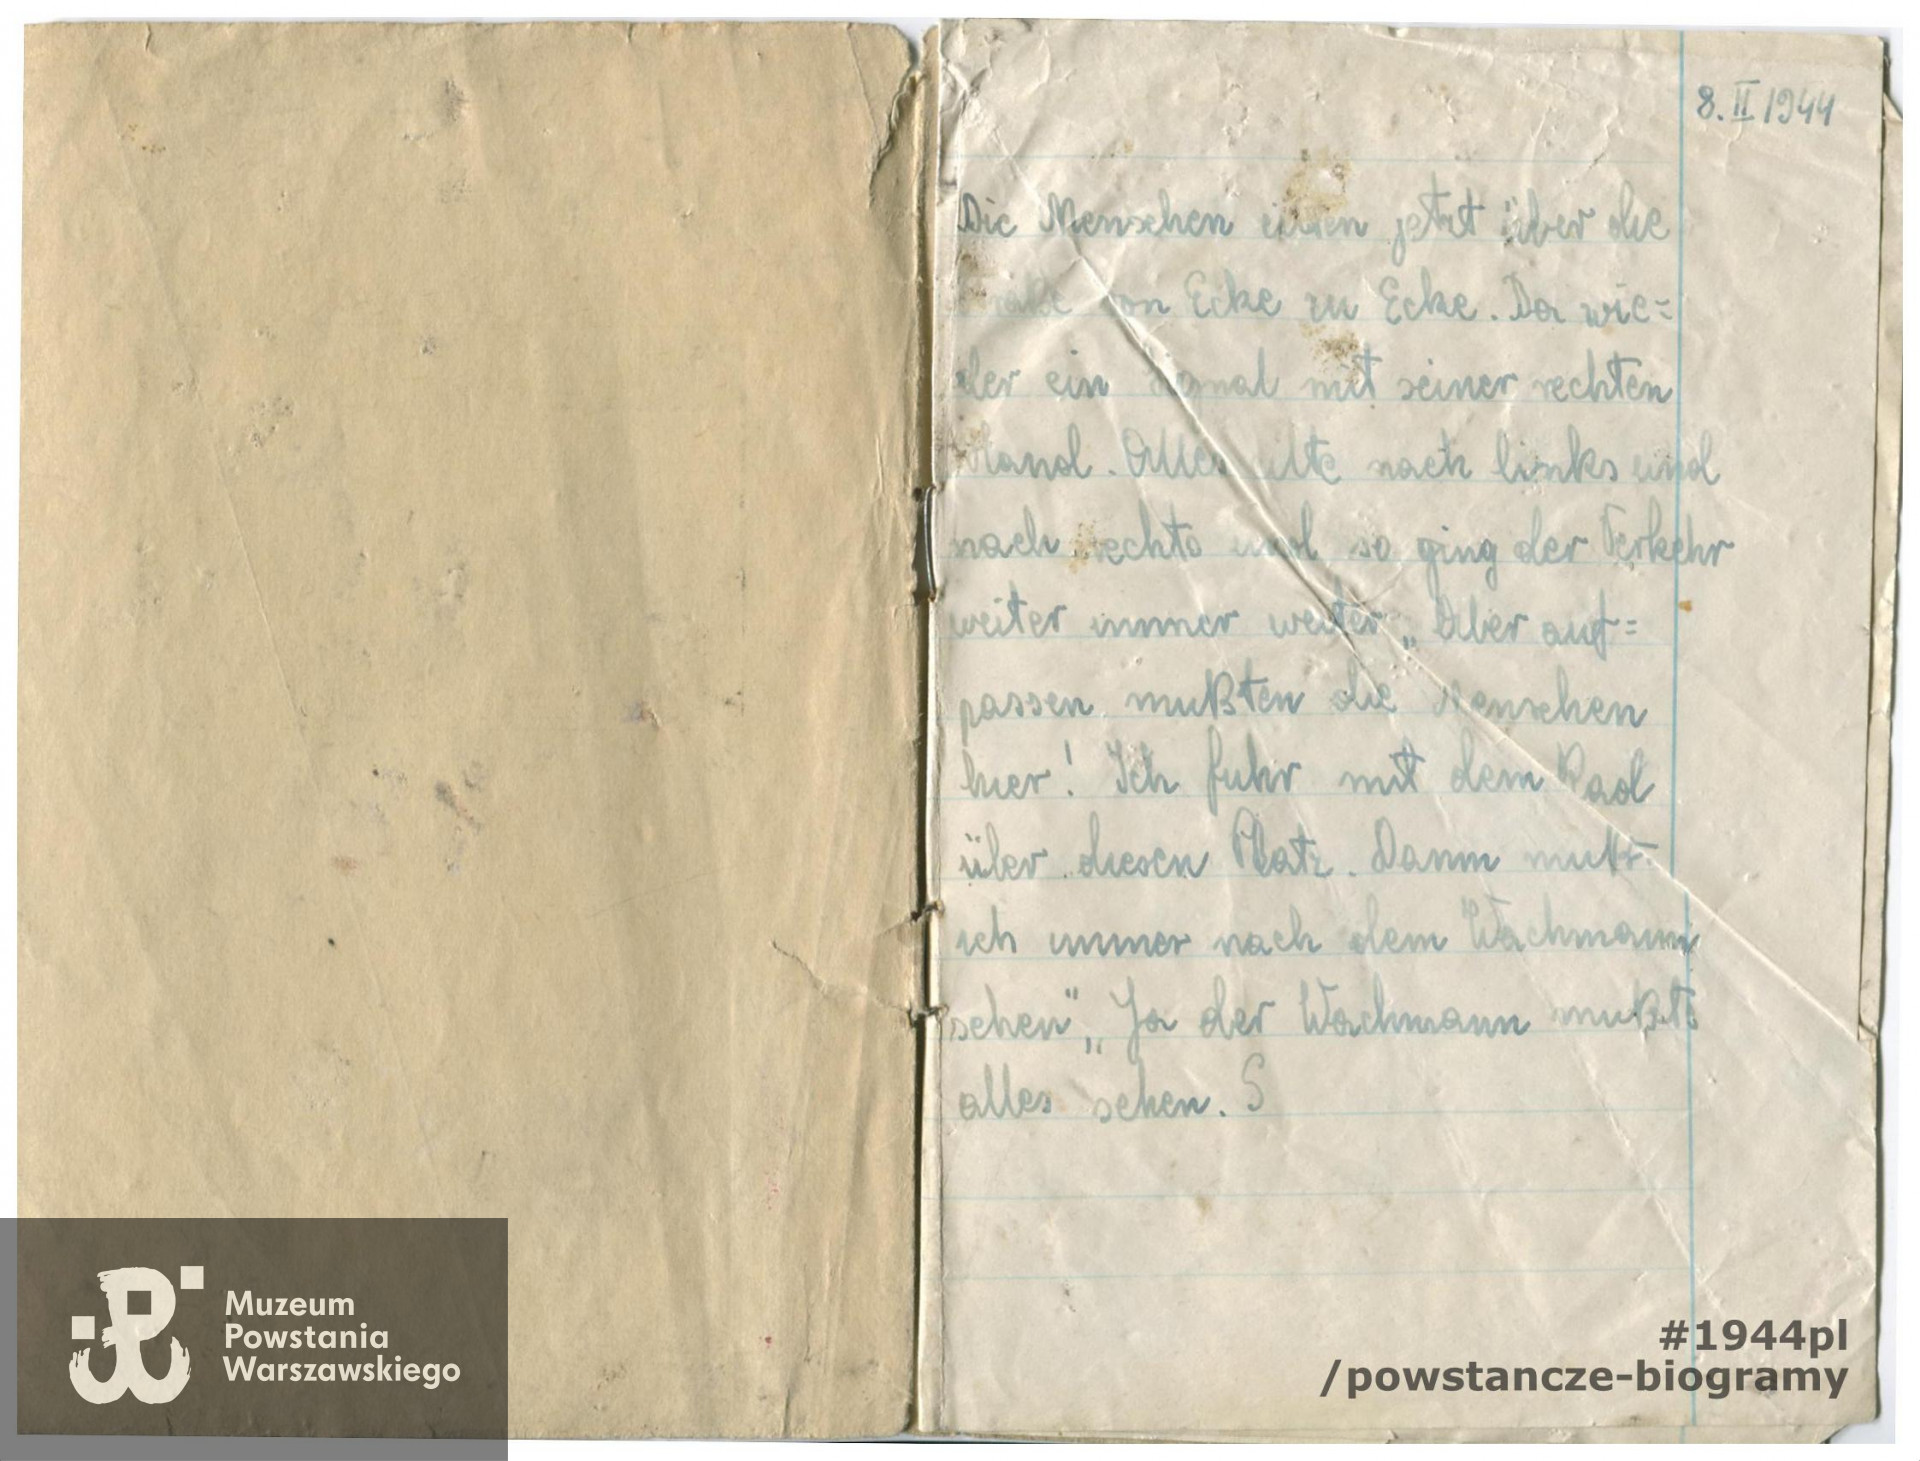 8. II 1944
Die Menschen eilten jetzt über die
von Ecke zu Ecke. Da wie=
der ein Signal mit seiner rechten
Hand. Alles eilte nach links und
nach rechts und so ging der Verkehr
weiter immer weiter „Aber auf=
passen mußten die Menschen
hier! Ich fuhr mit dem Rad
über diesen Platz. Dann mußt
ich immer nach dem Wachmann
sehen" „Ja der Wachmann mußte
alles sehen. S
Muzeum
Powstania
Warszawskiego
#1944pl
/powstancze-biogramy